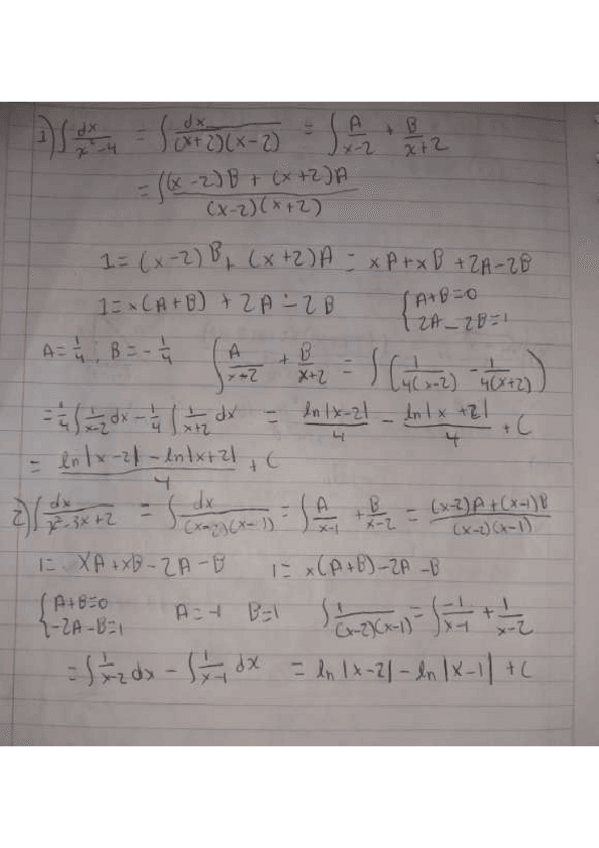 1) ∫ dx/(x²-4) = ∫ dx/((x+2)(x-2)) = ∫ A/(x-2) + B/(x+2)
= ∫ ((x-2)B + (x+2)A)/((x-2)(x+2))
1 = (x-2)B + (x+2)A = xA+xB+2A-2B
1 = x(A+B) + 2A - 2B { A+B=0
2A-2B=1
A=1/4 ; B=-1/4 ∫ A/(x-2) + B/(x+2) = ∫ (1/(4(x-2)) - 1/(4(x+2)))
= 1/4 ∫ 1/(x-2) dx - 1/4 ∫ 1/(x+2) dx = ln|x-2|/4 - ln|x+2|/4 + C
= (ln|x-2| - ln|x+2|)/4 + C
2) ∫ dx/(x²-3x+2) = ∫ dx/((x-2)(x-1)) = ∫ A/(x-1) + B/(x-2) = ((x-2)A+(x-1)B)/((x-2)(x-1))
1 = xA+xB-2A-B 1 = x(A+B)-2A-B
{ A+B=0
-2A-B=1 A=-1 B=1 ∫ 1/((x-2)(x-1)) = ∫ -1/(x-1) + 1/(x-2)
= ∫ 1/(x-2) dx - ∫ 1/(x-1) dx = ln|x-2| - ln|x-1| + C